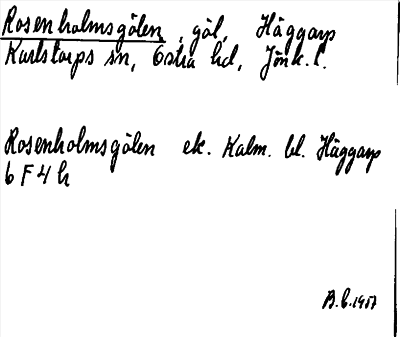 Rosenholmsgölen, göl, Häggarp
Karlstorps sn, Östra hd, Jönk. l.
Rosenholmsgölen ek. Kalm. bl. Häggarp
6 F 4 h
B.L. 1957